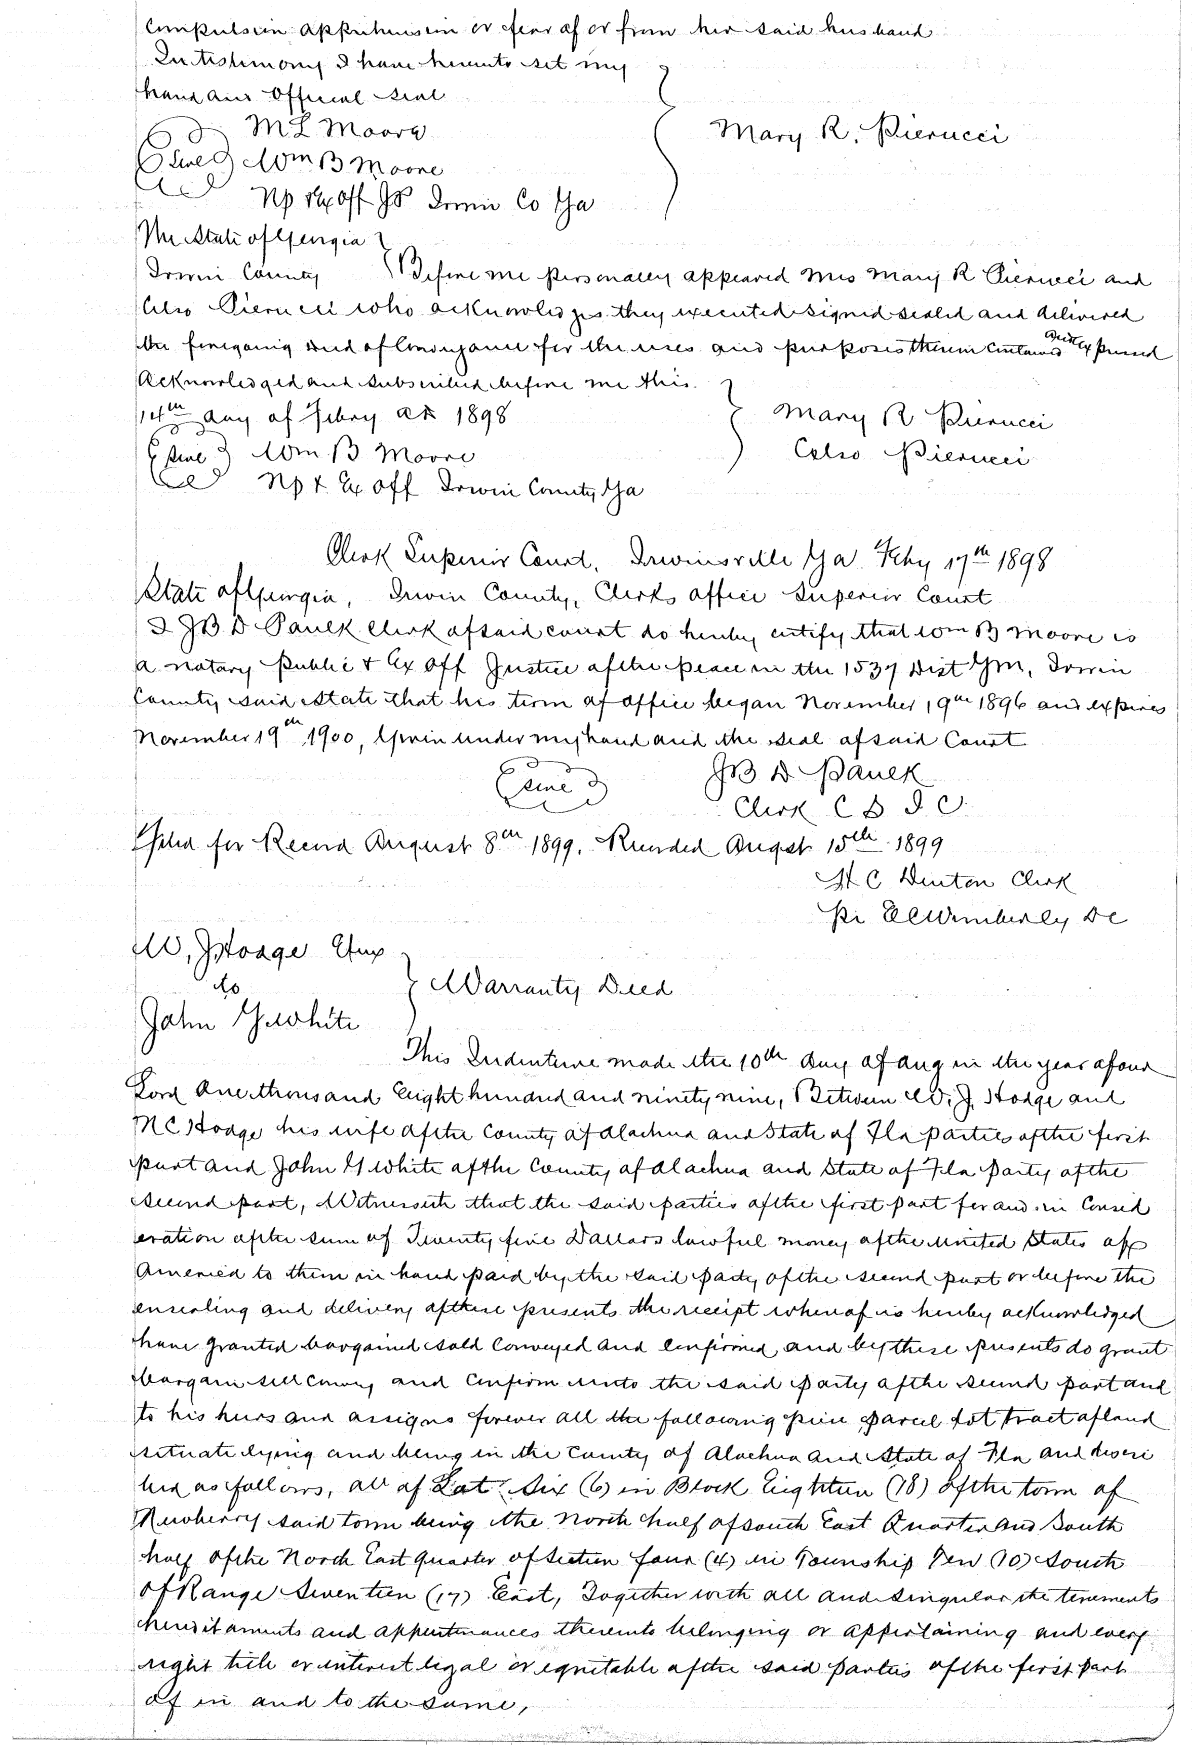 Compulsion apprehension or fear of or from her said husband
In testimony I have hereunto set my
hand and Official seal
M L Moore
Mary R. Pierucci
Seal Wm B Moore
Np & Ex off JP Irwin Co Ga
The State of Georgia
Irwin County Before me personally appeared Mrs Mary R Pierucci and
Celso Pierucci who acknowledges they executed signed sealed and delivered
the foregoing deed of Conveyance for the uses and purposes therein Contained and expressed
Acknowledged and subscribed before me this
14th day of Febry AD 1898
Mary R Pierucci
Seal Wm B Moore
Celso Pierucci
Np & Ex off Irwin County Ga
Clerk Superior Court, Irwinsville Ga Feby 17th 1898
State of Georgia, Irwin County, Clerks office Superior Court
I JB D Paulk Clerk of said court do hereby certify that Wm B Moore is
a notary Public & Ex off Justice of the peace in the 1537 Dist GM, Irwin
County said State that his term of office began November 19th 1896 and expires
November 19th 1900, Given under my hand and the seal of said Court
Seal
JB D Paulk
Clerk C S I C
Filed for Record August 8th 1899. Recorded Augst 15th 1899
H C Denton Clerk
Per E C Wimberly DC
W, J, Hodge Etux
to
Warranty Deed
John G. White
This Indenture made the 10th day of Aug in the year of our
Lord One thousand Eight hundred and ninety nine, Between W. J. Hodge and
M C Hodge his wife of the County of Alachua and State of Fla parties of the first
part and John G White of the County of Alachua and State of Fla Party of the
second part, Witnesseth that the said parties of the first part for and in Consid
eration of the sum of Twenty five Dollars lawful money of the United States of
America to them in hand paid by the said party of the second part or before the
ensealing and delivery of these presents the receipt whereof is hereby acknowledged
have granted bargained sold Conveyed and Confirmed, and by these presents do grant
bargain sell Convey and Confirm unto the said party of the second part and
to his heirs and assigns forever all the following piece parcel lot tract of land
situate lying and being in the County of Alachua and State of Fla and descri
bed as follows, all of Lot Six (6) in Block Eighteen (18) of the town of
Newberry said town being the North half of South East Quarter and South
half of the North East quarter of Section four (4) in Township Ten (10) South
Of Range Seventeen (17) East, Together with all and singular the tenements
hereditaments and appurtenances thereunto belonging or appertaining and every
right title or interest legal or equitable of the said parties of the first part
of in and to the same,